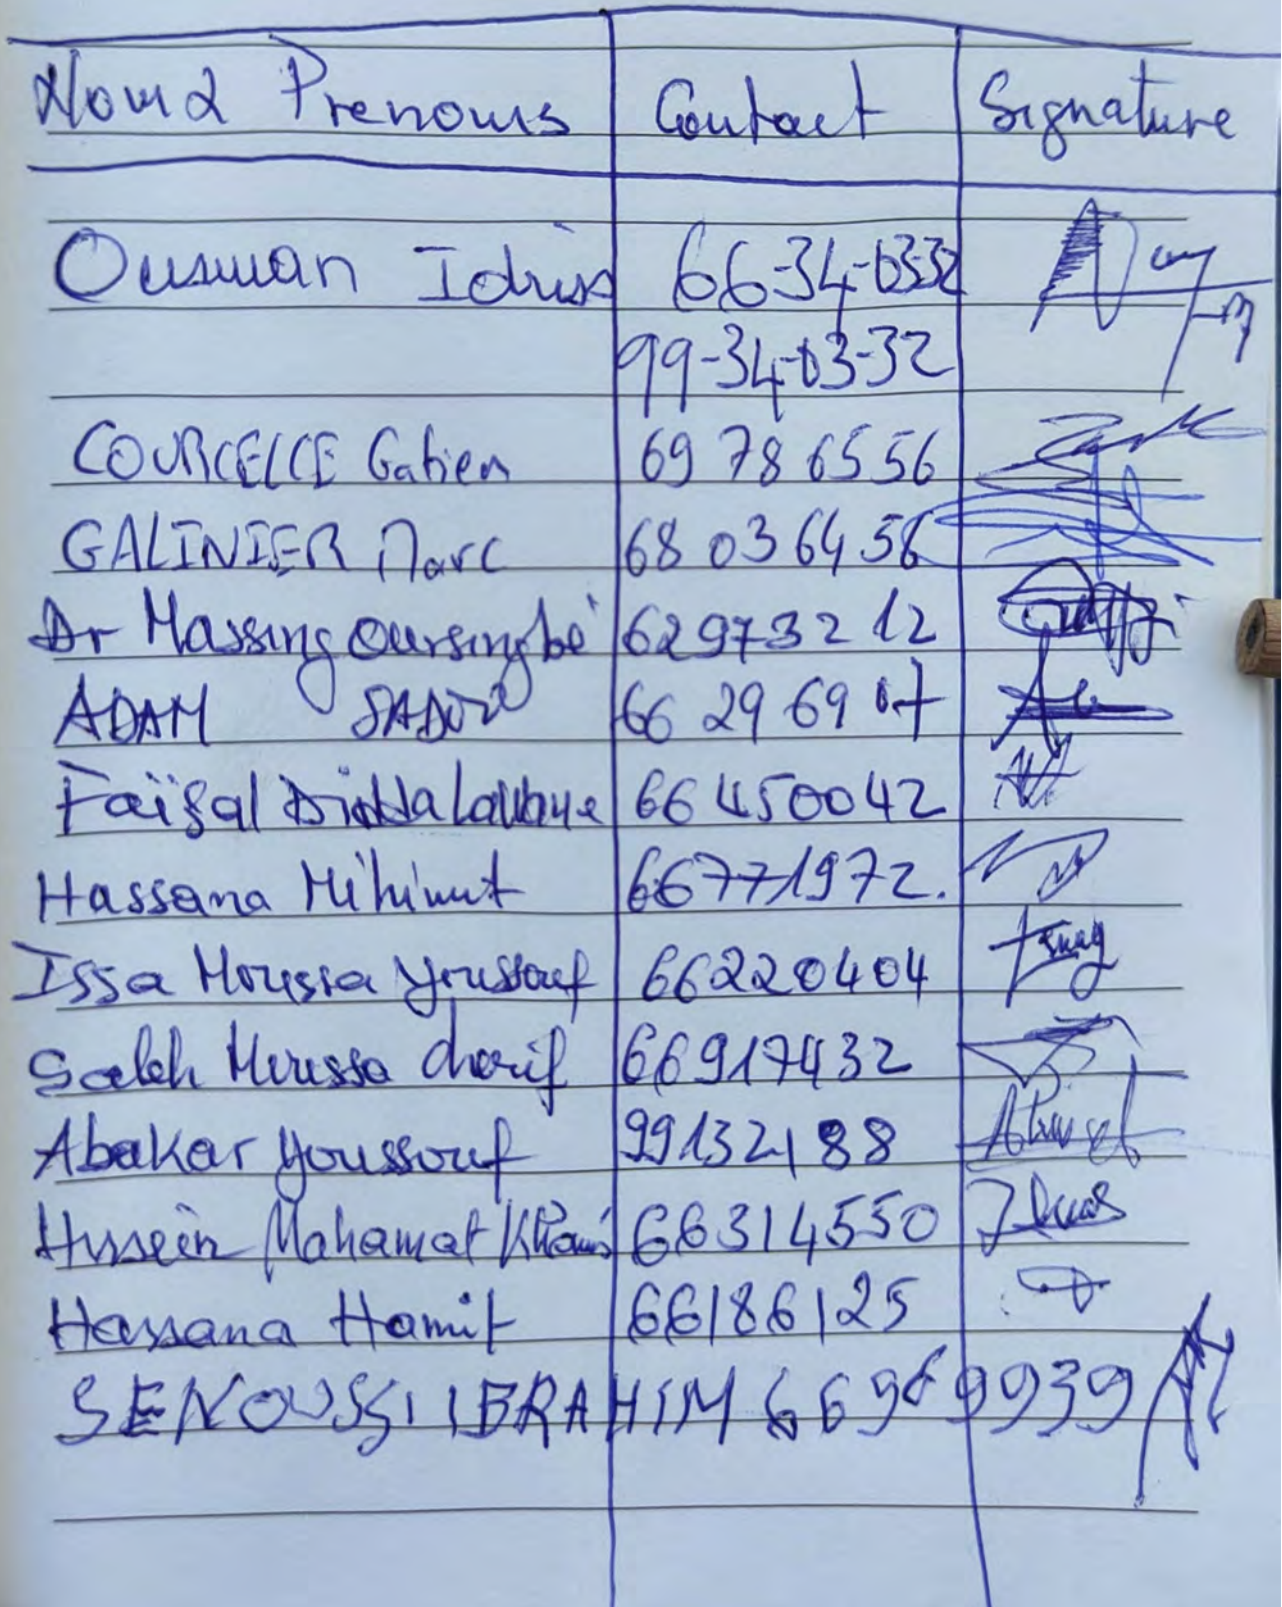 Nom & Prenoms Contact Signature
Ousman Idriss 66-34-03-32
99-34-03-32
COURCELLE Gatien 69 78 65 56
GALINIER Marc 68 03 64 56
Dr Massing Oursingbé 62973212
ADAM SADOU 66 29 69 07
Faïsal Didda 66450042
Hassana Mihimit 66771972.
Issa Moussa Youssouf 66220404
Saleh Moussa cherif 66917432
Abakar Youssouf 99132188
Hissein Mahamat Khamis 66314550
Hassana Hamit 66186125
SENOUSSI IBRAHIM 66969939